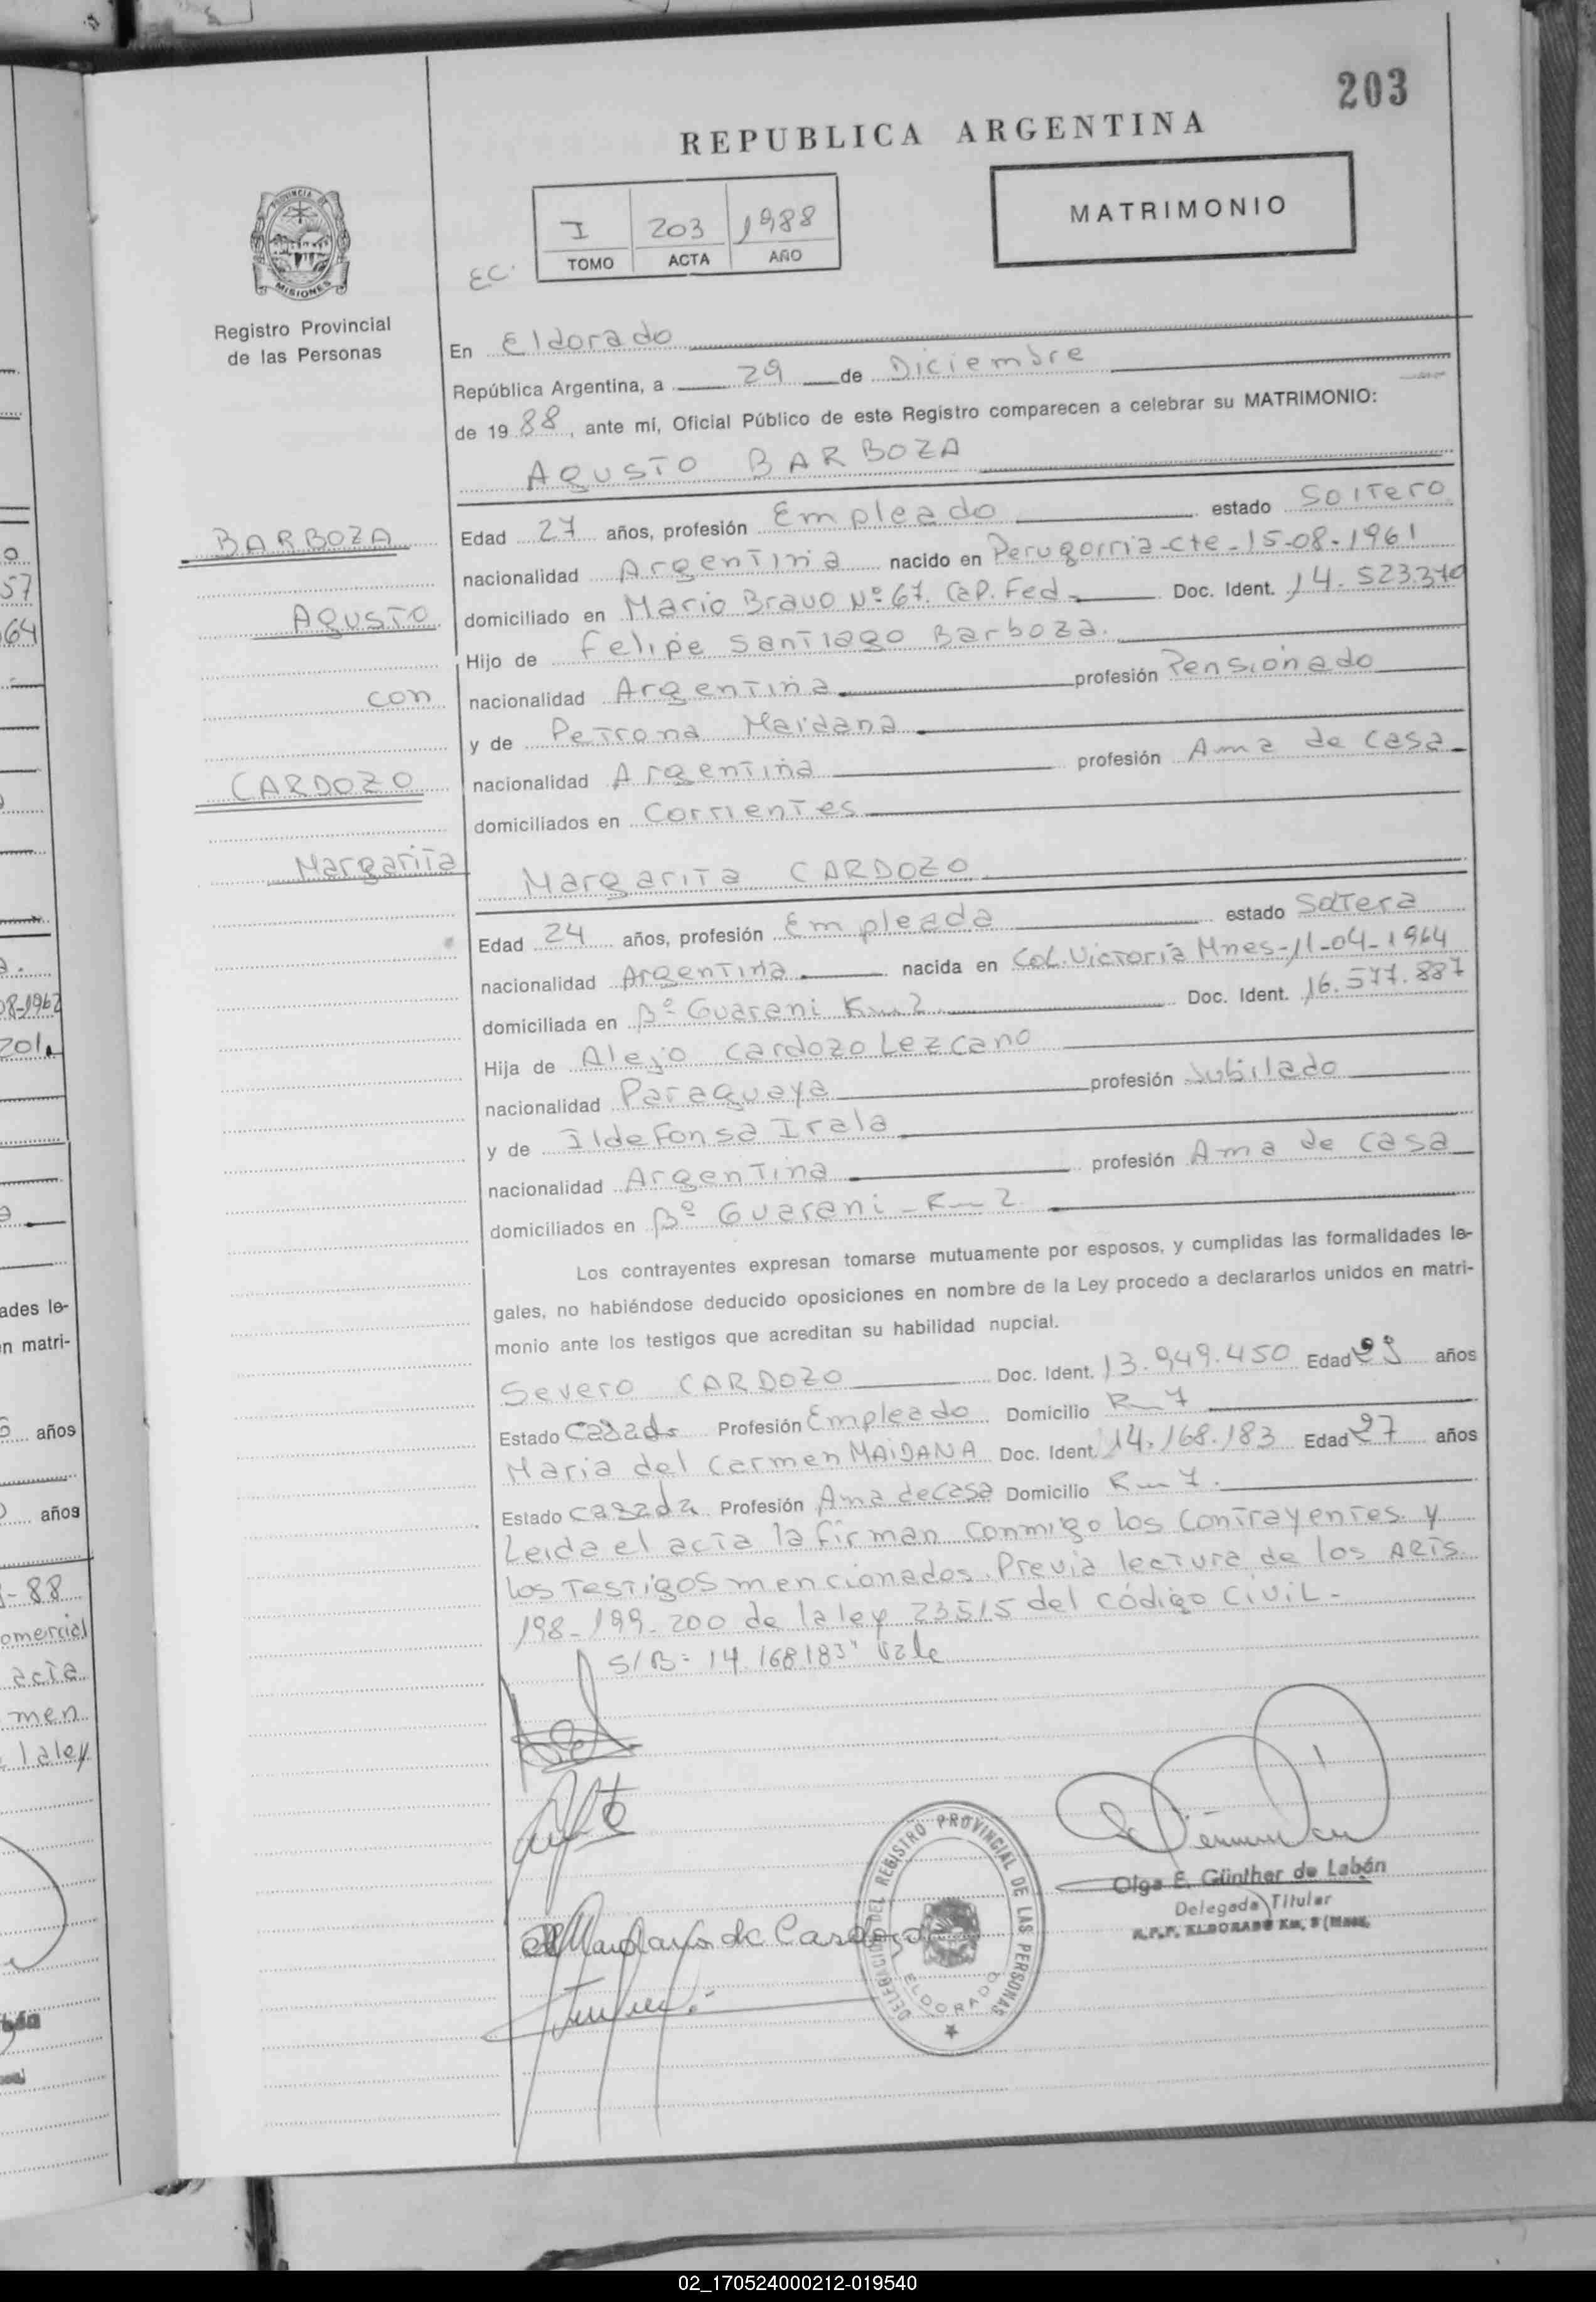 203
REPUBLICA ARGENTINA
MATRIMONIO
I 203 1988
TOMO ACTA AÑO
EC.
PROVINCIA DE
MISIONES
Registro Provincial
de las Personas
En Eldorado
República Argentina, a 29 de Diciembre
de 1988, ante mí, Oficial Público de este Registro comparecen a celebrar su MATRIMONIO:
Agusto BARBOZA
BARBOZA
Agusto
con
CARDOZO
Margarita
Edad 27 años, profesión Empleado estado Soltero
nacionalidad Argentina nacido en Perugorria-cte-15-08-1961
domiciliado en Mario Bravo Nº 67. Cap. Fed. Doc. Ident. 14.523.370
Hijo de Felipe Santiago Barboza.
nacionalidad Argentina profesión Pensionado
y de Petrona Maidana
nacionalidad Argentina profesión Ama de casa
domiciliados en Corrientes
Margarita CARDOZO
Edad 24 años, profesión Empleada estado Soltera
nacionalidad Argentina nacida en Col. Victoria Mnes-11-04-1964
domiciliada en Bº Guarani Km 2. Doc. Ident. 16.577.887
Hija de Alejo Cardozo Lezcano
nacionalidad Paraguaya profesión Jubilado
y de Ildefonsa Irala
nacionalidad Argentina profesión Ama de casa
domiciliados en Bº Guarani - Km 2
Los contrayentes expresan tomarse mutuamente por esposos, y cumplidas las formalidades le-
gales, no habiéndose deducido oposiciones en nombre de la Ley procedo a declararlos unidos en matri-
monio ante los testigos que acreditan su habilidad nupcial.
Severo CARDOZO Doc. Ident. 13.949.450 Edad 29 años
Estado Casado Profesión Empleado Domicilio Km 7
Maria del Carmen MAIDANA Doc. Ident. 14.168.183 Edad 27 años
Estado Casada Profesión Ama de casa Domicilio Km 7.
Leida el acta la firman conmigo los contrayentes y
los testigos mencionados. Previa lectura de los ARTS.
198-199-200 de la ley 23515 del código CiViL-
S/B: 14.168183" Vale
Maidana de Cardozo
DELEGACION DEL REGISTRO PROVINCIAL DE LAS PERSONAS
ELDORADO
Olga E. Günther de Labán
Delegada Titular
R.P.P. ELDORADO Km. 9 (Mnes.
57
64
08-1962
201
ades le-
n matri-
años
años
-88
omercial
acta
men
la ley
02_170524000212-019540